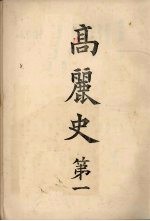 髙麗史
第一